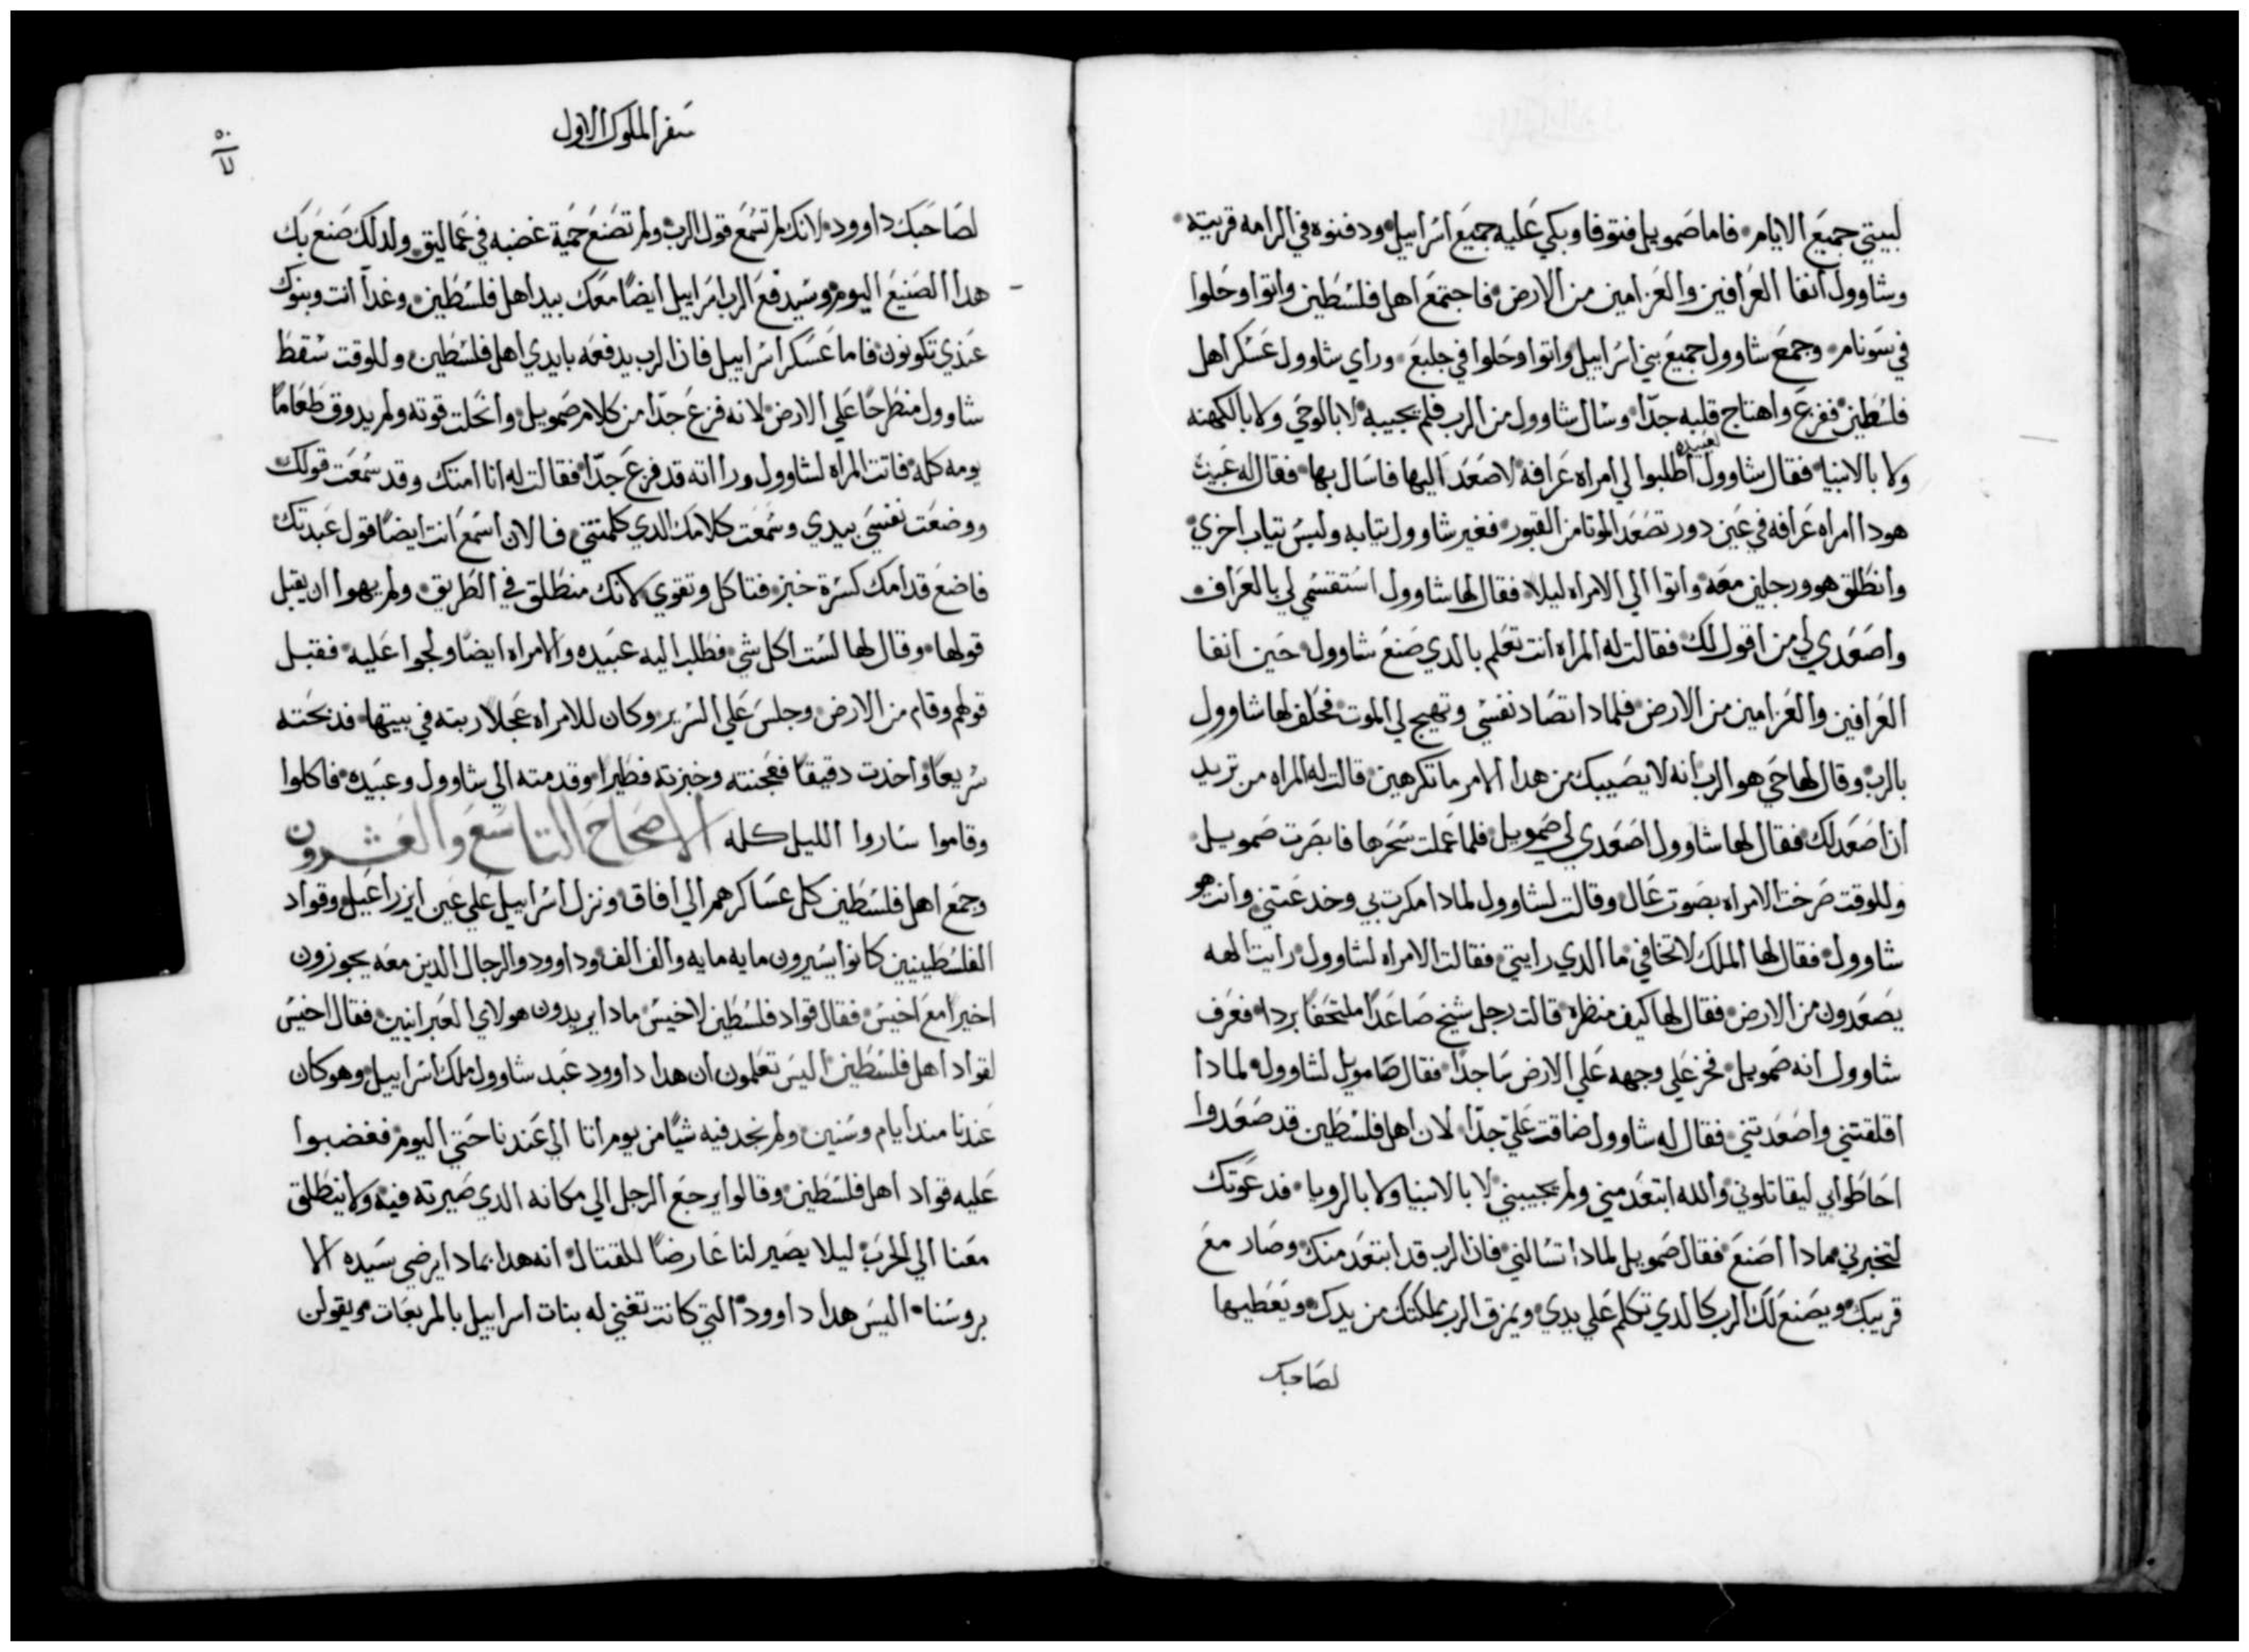 لبيتي جميع الايام فاما صمويل فتوفا وبكي عليه جميع اسرابيل ودفنوه في الرامه قريته
وشاوول انفا العرافين والعزامين من الارض فاجتمع اهل فلسطين واتوا وحلوا
في سونام وجمع شاوول جميع بني اسرابيل واتوا وحلوا في جلبع وراي شاوول عسكر اهل
فلسطين ففزع واهتاج قلبه جدا وسال شاوول من الرب فلم يجيبه لا بالوحي ولا بالكهنه
ولا بالانبيا فقال شاوول لعبيده اطلبوا لي امراه عرافه لاصعد اليها فاسال بها فقال له عبيده
هودا امراه عرافه في عين دور تصعد الموتا من القبور فغير شاوول تيابه ولبس تياب اخري
وانطلق هو ورجلين معه واتوا الي الامراه ليلا فقال لها شاوول استقسمي لي بالعرافه
واصعدي لي من اقول لك فقالت له المراه انت تعلم بالدي صنع شاوول حين انفا
العرافين والعزامين من الارض فلمادا تصاد نفسي وتهيج لي الموت فحلف لها شاوول
بالرب وقال لها حي هو الرب انه لا يصيبك من هدا الامر ما تكرهين قالت له المراه من تريد
ان اصعد لك فقال لها شاوول اصعدي لي صمويل فلما عملت سحرها فابصرت صمويل
وللوقت صرخت الامراه بصوت عال وقالت لشاوول لمادا مكرت بي وخدعتني وانت هو
شاوول فقال لها الملك لا تخافي ما الدي رايتي فقالت الامراه لشاوول رايت الهه
يصعدون من الارض فقال لها كيف منظره قالت رجل شيخ صاعدا ملتحفا بردا فعرف
شاوول انه صمويل فخر علي وجهه علي الارض ساجدا فقال صامويل لشاوول لمادا
اقلقتني واصعدتني فقال له شاوول ضاقت علي جدا لان اهل فلسطين قد صعدوا
احاطوا بي ليقاتلوني والله ابتعد مني ولم يجيبني لا بالانبيا ولا بالرويا فدعوتك
لتخبرني مادا اصنع فقال صمويل لمادا تسالني فان الرب قد ابتعد منك وصار مع
قريبك ويصنع لك الرب كالدي تكلم علي يدي ويمزق الرب مملكتك من يدك ويعطيها
لصاحبك
سفر الملوك الاول
لصاحبك داوود لانك لم تسمع قول الرب ولم تصنع حمية غضبه في عماليق ولدلك صنع بك
هدا الصنيع اليوم وسيدفع الرب اسرابيل ايضا معك بيد اهل فلسطين وغدا انت وبنوك
عندي تكونون فاما عسكر اسرابيل فان الرب يدفعه بايدي اهل فلسطين وللوقت سقط
شاوول منطرحا علي الارض لانه فزع جدا من كلام صمويل وانحلت قوته ولم يدوق طعاما
يومه كله فاتت المراه لشاوول وراته قد فزع جدا فقالت له انا امتك وقد سمعت قولك
ووضعت نفسي بيدي وسمعت كلامك الدي كلمتني فالان اسمع انت ايضا قول عبدتك
فاضع قدامك كسرة خبز فتاكل وتقوي لانك منطلق في الطريق ولم يهوا ان يقبل
قولها وقال لها لست اكل شي فطلب اليه عبيده والامراه ايضا ولجوا عليه فقبل
قولهم وقام من الارض وجلس علي السرير وكان للامراه عجلا ربته في بيتها فدبحته
سريعا واخدت دقيقا فعجنته وخبزته فطيرا وقدمته الي شاوول وعبيده فاكلوا
وقاموا ساروا الليل كله الاصحاح التاسع والعشرون
وجمع اهل فلسطين كل عساكرهم الي افاق ونزل اسرابيل علي عين ايزراعيل وقواد
الفلسطينيين كانوا يسيرون مايه مايه والف الف وداوود والرجال الدين معه يجوزون
اخيرا مع اخيس فقال قواد فلسطين لاخيس مادا يريدون هولاي العبرانيين فقال اخيس
لقواد اهل فلسطين اليس تعلمون ان هدا داوود عبد شاوول ملك اسرابيل وهو كان
عندنا مند ايام وسنين ولم نجد فيه شيا من يوم اتا الي عندنا حتي اليوم فغضبوا
عليه قواد اهل فلسطين وقالوا يرجع الرجل الي مكانه الدي صيرته فيه ولا ينطلق
معنا الي الحرب ليلا يصير لنا عارضا للقتال انه هدا بمادا يرضي سيده الا
بروسنا اليس هدا داوود التي كانت تغني له بنات اسرابيل بالمربعات ويقولن